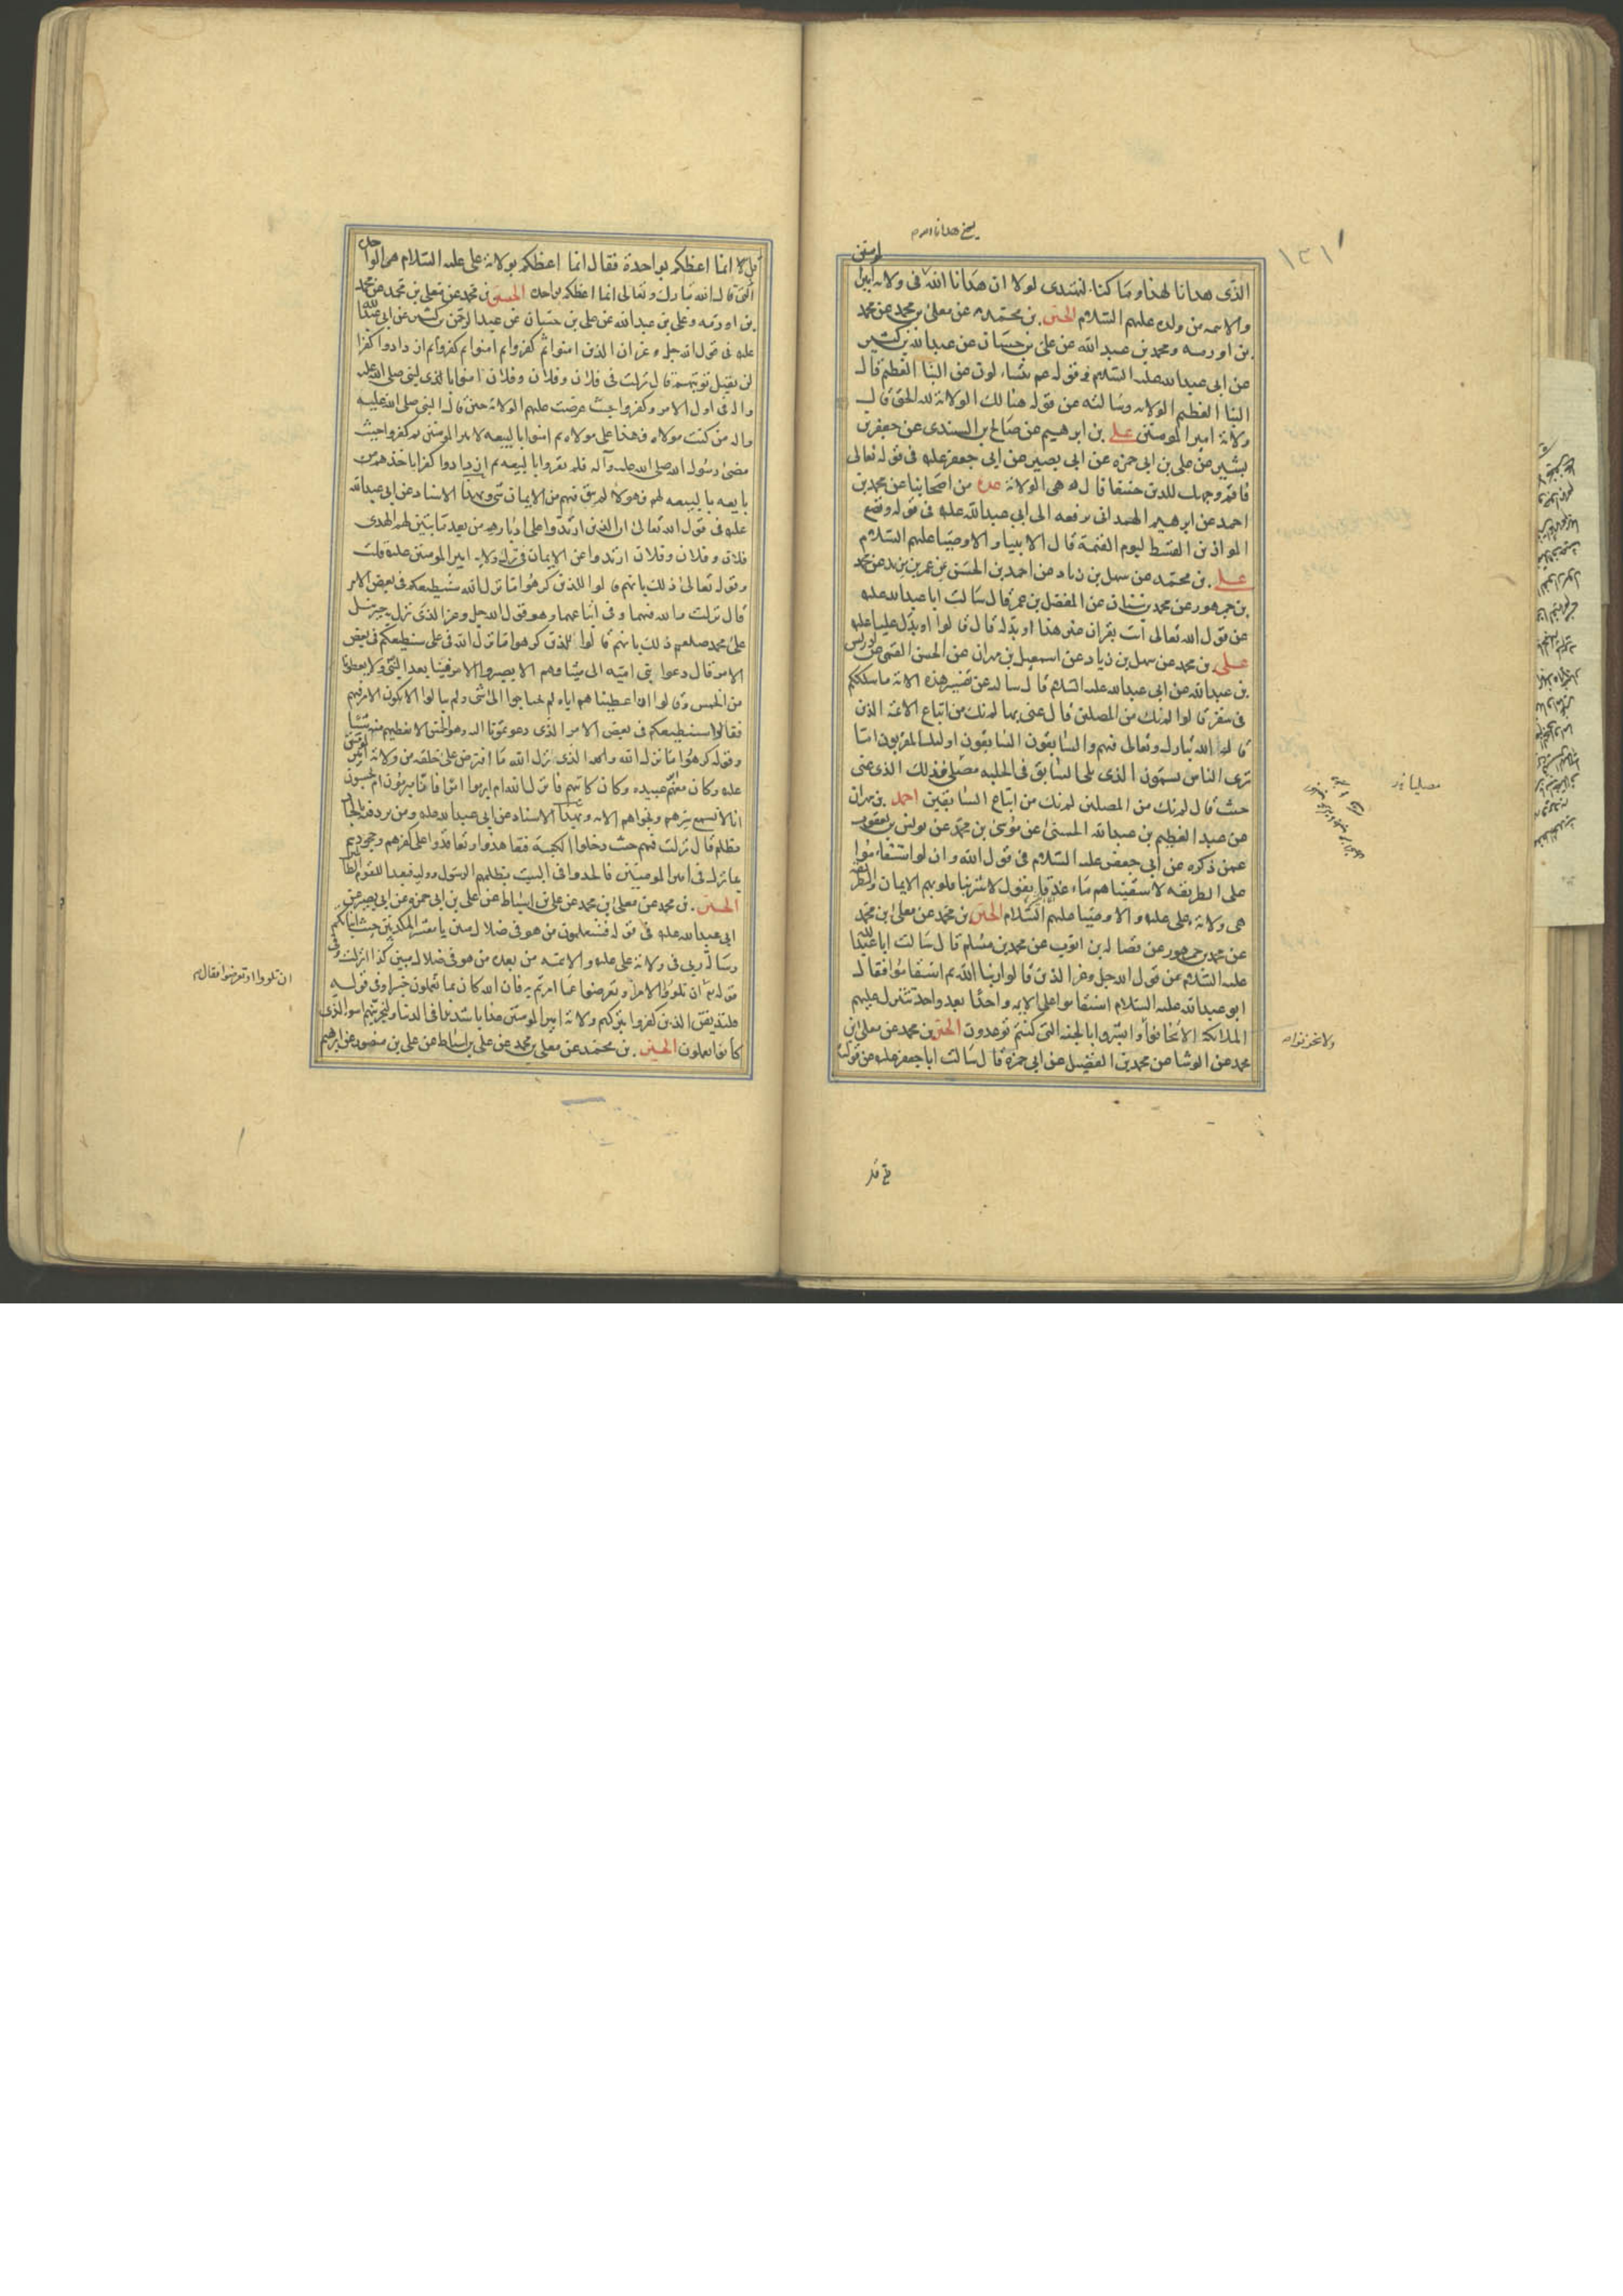 الذى هدانا لهذا وما كنا لنهتدى لولا ان هدانا الله فى ولاية امير المومنين
والائمه من ولده عليهم السلام الحسين بن محمد عن معلى بن محمد عن محمد
بن اورمه ومحمد بن عبد الله عن على بن حسان عن عبدالله بن كثير
عن ابى عبدالله عليه السلام فى قوله عم يتساءلون عن النبا العظيم قال
النبا العظيم الولايه وسالته عن قوله هنالك الولاية لله الحق قال
ولاية امير المومنين على بن ابرهيم عن صالح بن السندى عن جعفر بن
بشير عن على بن ابى حمزه عن ابى بصير عن ابى جعفر عليه فى قوله تعالى
فاقم وجهك للدين حنيفا قال هى الولاية عدة من اصحابنا عن محمد بن
احمد عن ابرهيم الهمدانى يرفعه الى ابى عبدالله عليه فى قوله ونضع
الموازين القسط ليوم القيمة قال الانبياء والاوصياء عليهم السلام
على بن محمد عن سهل بن زياد عن احمد بن الحسين بن عمر بن يزيد عن محمد
بن جمهور عن محمد بن سنان عن المفضل بن عمر قال سالت ابا عبدالله عليه
عن قول الله تعالى ائت بقران غير هذا او بدله قال قالوا او بدل عليا عليه
على بن محمد عن سهل بن زياد عن اسمعيل بن مهران عن الحسن القمى عن ادريس
بن عبدالله عن ابى عبدالله عليه السلام قال سالته عن تفسير هذه الاية ما سلككم
فى سقر قالوا لم نك من المصلين قال عنى بها لم نك من اتباع الائمة الذين
قال الله تبارك وتعالى فيهم والسابقون السابقون اولئك المقربون اما
ترى الناس يسمون الذى يلى السابق فى الحلبه مصلى فذلك الذى عنى
حيث قال لم نك من المصلين لم نك من اتباع السابقين احمد بن مهران
عن عبد العظيم بن عبدالله الحسنى عن موسى بن محمد عن يونس بن يعقوب
عمن ذكره عن ابى جعفر عليه السلام فى قول الله وان لو استقاموا
على الطريقه لاسقيناهم ماء غدقا يقول لاشربنا قلوبهم الايمان والطريقه
هى ولاية على عليه والاوصياء عليهم السلام الحسين بن محمد عن معلى بن محمد
عن محمد بن جمهور عن فضاله بن ايوب عن محمد بن مسلم قال سالت ابا عبدالله
عليه السلام عن قول الله جل وعز الذين قالوا ربنا الله ثم استقاموا فقال
ابو عبدالله عليه السلام استقاموا على الائمه واحدا بعد واحد تتنزل عليهم
الملائكة الا تخافوا وابشروا بالجنه التى كنتم توعدون الحسين بن محمد عن معلى بن
محمد عن الوشا عن محمد بن الفضيل عن ابى حمزة قال سالت ابا جعفر عليه عن قوله
ولا تحزنوا
قل انما اعظكم بواحدة فقال انما اعظكم بولاية على عليه السلام هى الواحدة
التى قال الله تبارك وتعالى انما اعظكم بواحدة الحسين بن محمد عن معلى بن محمد عن محمد
بن اورمه وعلى بن عبدالله عن على بن حسان عن عبد الرحمن بن كثير عن ابى عبدالله
عليه فى قول الله جل وعز ان الذين امنوا ثم كفروا ثم امنوا ثم كفروا ثم ازدادوا كفرا
لن يقبل توبتهم قال نزلت فى فلان وفلان وفلان امنوا بالنبى صلى الله عليه
واله فى اول الامر وكفروا حيث عرضت عليهم الولاية حين قال النبى صلى الله عليه
واله من كنت مولاه فهذا على مولاه ثم امنوا بالبيعه لامير المومنين ثم كفروا حيث
مضى رسول الله صلى الله عليه وآله فلم يقروا بالبيعه ثم ازدادوا كفرا باخذهم من
بايعه بالبيعه لهم فهولاء لم يبق فيهم من الايمان شى وبهذا الاسناد عن ابى عبدالله
عليه فى قول الله تعالى ان الذين ارتدوا على ادبارهم من بعد ما تبين لهم الهدى
فلان وفلان وفلان ارتدوا عن الايمان فى ترك ولاية امير المومنين عليه قلت
وقوله تعالى ذلك بانهم قالوا للذين كرهوا ما نزل الله سنطيعكم فى بعض الامر
قال نزلت والله فيهما وفى اتباعهما وهو قول الله جل وعز الذى نزل به جبرئيل
على محمد صلعم ذلك بانهم قالوا للذين كرهوا ما نزل الله فى على سنطيعكم فى بعض
الامر قال دعوا بنى اميه الى ميثاقهم الا يصيروا الامر فينا بعد النبى ولا يعطونا
من الخمس وقالوا ان اعطيناهم اياه لم يحتاجوا الى شى ولم يبالوا الا يكون الامر فيهم
فقالوا سنطيعكم فى بعض الامر الذى دعوتمونا اليه وهو الخمس الا نعطيهم منه شيئا
وقوله كرهوا ما نزل الله والذى نزل الله ما افترض على خلقه من ولاية امير المومنين
عليه وكان معهم ابو عبيده وكان كاتبهم فانزل الله ام ابرموا امرا فانا مبرمون ام يحسبون
انا لا نسمع سرهم ونجواهم الايه وبهذا الاسناد عن ابى عبدالله عليه ومن يرد فيه بالحاد
بظلم قال نزلت فيهم حيث دخلوا الكعبة فتعاهدوا وتعاقدوا على كفرهم وجحودهم
بما نزل فى امير المومنين فالحدوا فى البيت بظلمهم الرسول ووليه فبعدا للقوم الظالمين
الحسين بن محمد عن معلى بن محمد عن على بن اسباط عن على بن ابى حمزة عن ابى بصير عن
ابى عبدالله عليه فى قوله فستعلمون من هو فى ضلال مبين يا معشر المكذبين حيث انباتكم
رسالة ربى فى ولاية على عليه والائمه من بعده من هو فى ضلال مبين كذا انزلت وفى
قوله ان تلووا الامر وتعرضوا عما امرتم به فان الله كان بما تعملون خبيرا وفى قوله
فلنذيقن الذين كفروا بتركهم ولاية امير المومنين عذابا شديدا فى الدنيا ولنجزينهم اسوا الذى
كانوا يعملون الحسين بن محمد عن معلى بن محمد عن على بن اسباط عن على بن منصور عن ابرهيم
ان تلووا او تعرضوا فقال